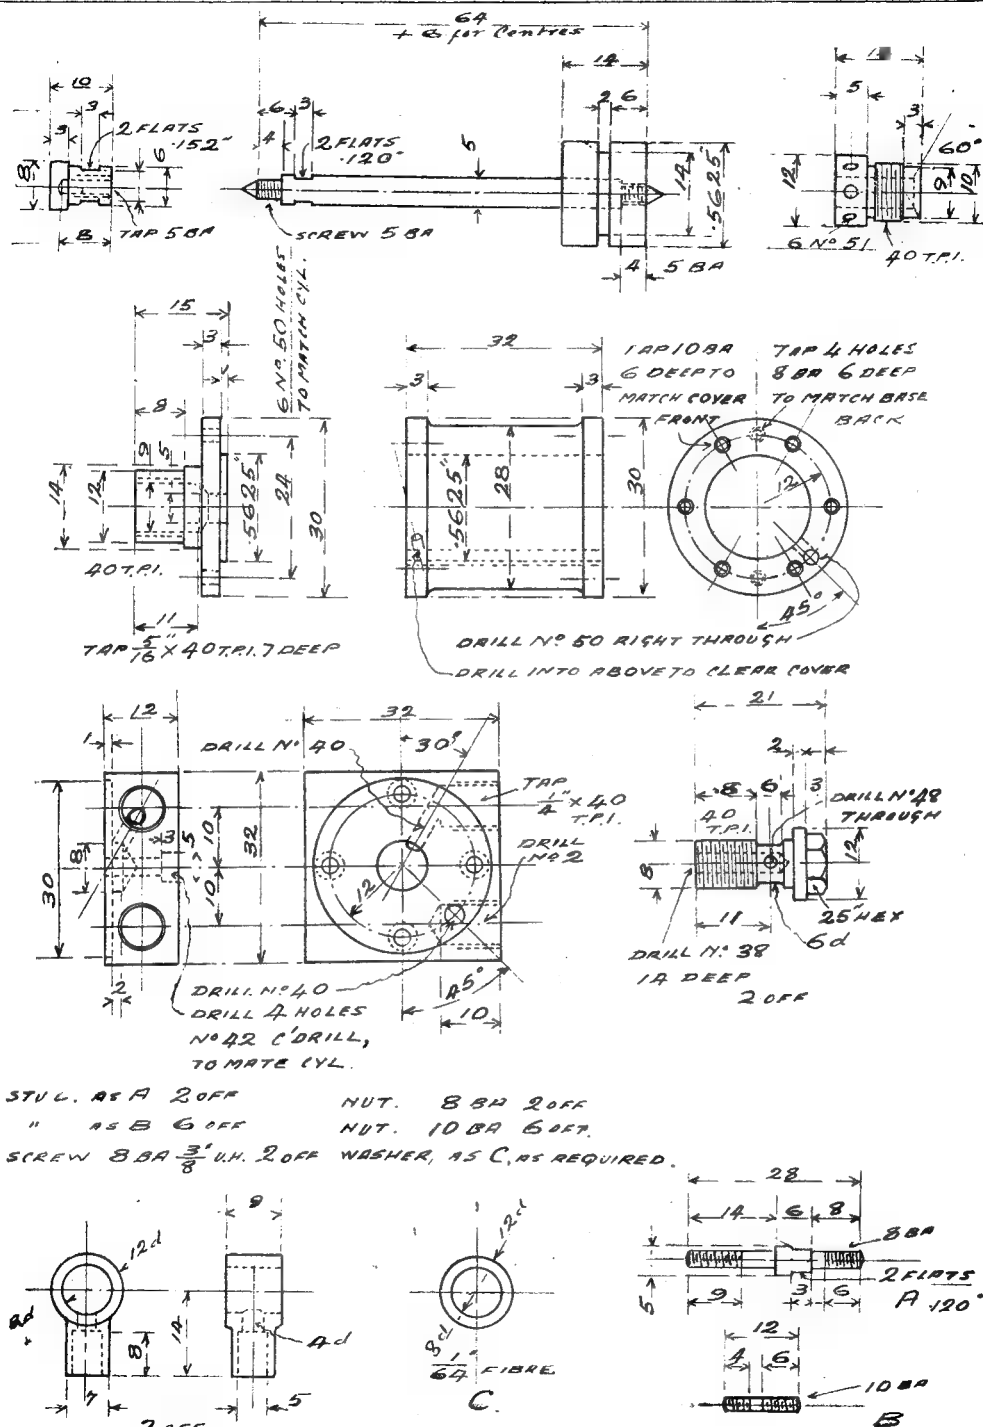 64
+ 6 for Centres
14
10
3
3
2 FLATS
.152"
6
8
8
TAP 5 BA
6
3
4
2 FLATS
.120"
5
2
6
14
.5625"
SCREW 5 BA
4
5 BA
5
3
60°
12
9
10
6 Nº 51
40 T.P.I.
15
3
8
6 Nº 50 HOLES
TO MATCH CYL.
9
5
14
12
.5625"
24
30
40 T.P.I.
11
TAP 5/16" X 40 T.P.I. 7 DEEP
32
3
3
.5625"
28
30
TAP 10 BA
6 DEEP TO
MATCH COVER
FRONT
TAP 4 HOLES
8 BA 6 DEEP
TO MATCH BASE
BACK
12
45°
DRILL Nº 50 RIGHT THROUGH
DRILL INTO ABOVE TO CLEAR COVER
12
1
30
8
3
5
10
10
32
2
32
DRILL Nº 40
30°
TAP
1/4" X 40
T.P.I.
DRILL
Nº 2
12
DRILL Nº 40
DRILL 4 HOLES
Nº 42 C'DRILL,
TO MATE CYL.
45°
10
21
2
8
6
3
DRILL Nº 48
THROUGH
40
T.P.I.
8
12
11
.25" HEX
6d
DRILL Nº 38
14 DEEP
2 OFF
STUD. AS A 2 OFF
" AS B 6 OFF
SCREW 8 BA 3/8" U.H. 2 OFF
NUT. 8 BA 2 OFF
NUT. 10 BA 6 OFF.
WASHER, AS C, AS REQUIRED.
12d
8d
8
14
7
2 OFF
9
4d
5
12d
8d
1/64" FIBRE
C.
28
14
6
8
8 BA
5
9
3
6
2 FLATS
A .120"
12
4
6
10 BA
B